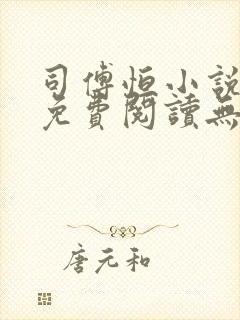 司傅恒小說
免費閱讀無
唐元和